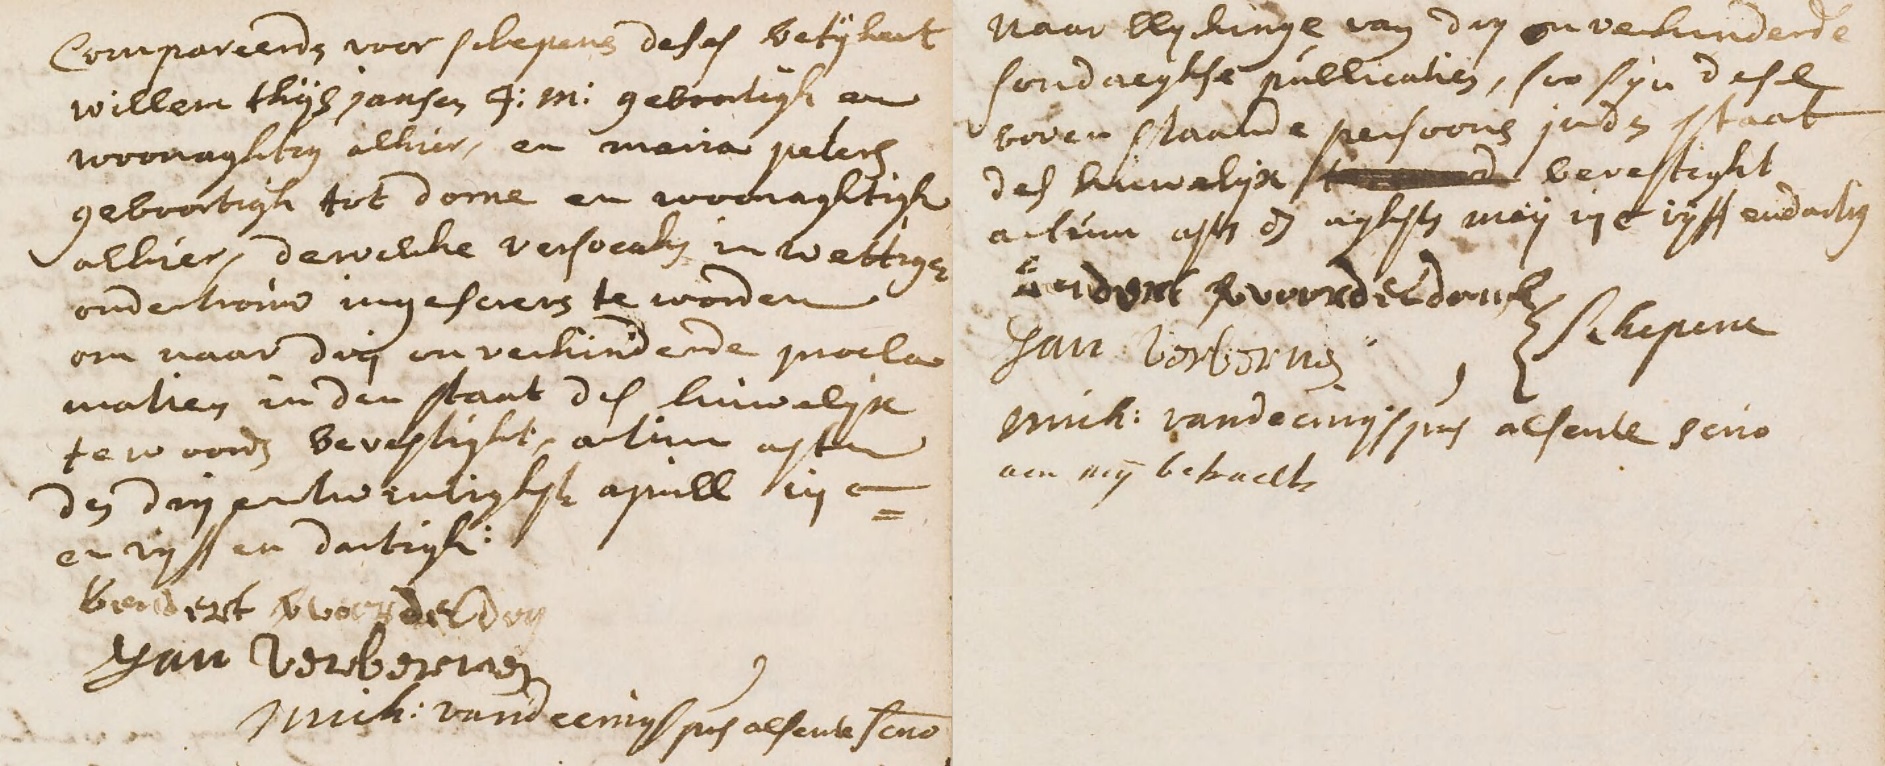 Compareerde voor schepens deses betÿkent
willem thijs jansen J: m: geboortigh en
woonaghtig alhier, en maria peters
geboortigh tot dorne en woonaghtigh
alhier, dewelke versoeken in wettige
ondertrouw ingescrevs te worden
om naar drij onverhinderde procla
matien in den staat des huwelijx
te worde bevestight, actum asten
den drij en twintighste aprill
en vijff en dartigh:
Jan Verberne
Mich: vande cruijs pres absente secro
Naar
sondaeghse publicatien, soo sijn dese
boven staande persoons inde staat
des huwelijx bevestight
actum asten de aghtste meij en dartig
Jan Verberne
schepene
Mich: vande cruijs pres absente secro
aen mij betaelt